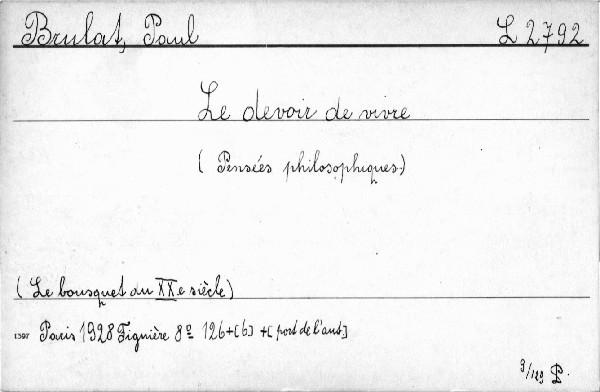 Brulat, Paul L 2792
Le devoir de vivre
( Pensées philosophiques.)
( Le bousquet du XXe siècle)
1397 Paris 1928 Fignière 8º 126+[6] +[port de l'aut.]
P.